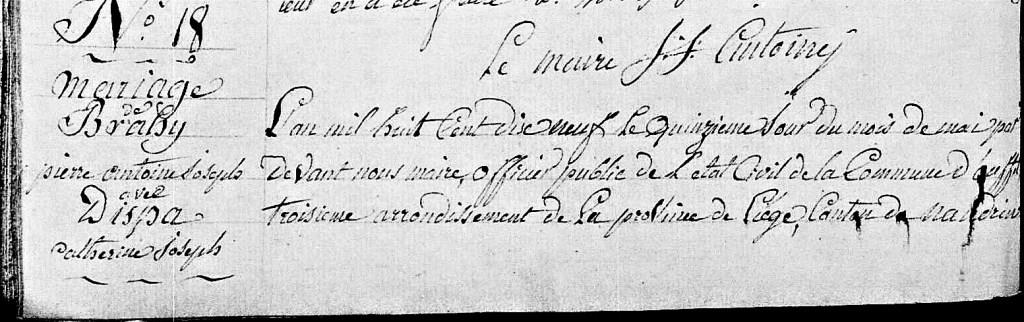 N.o 18
mariage
de
Brahy
pierre antoine Joseph
avec
Dispa
Catherine Joseph
Le maire J. J. Antoine
L'an mil huit Cent dise neuf le quinzieme Jour du mois de mai, par
devant nous maire, officier public de L'état Civil de la Commune d'
troisieme arrondissement de La province de Liége, Canton de nandrin